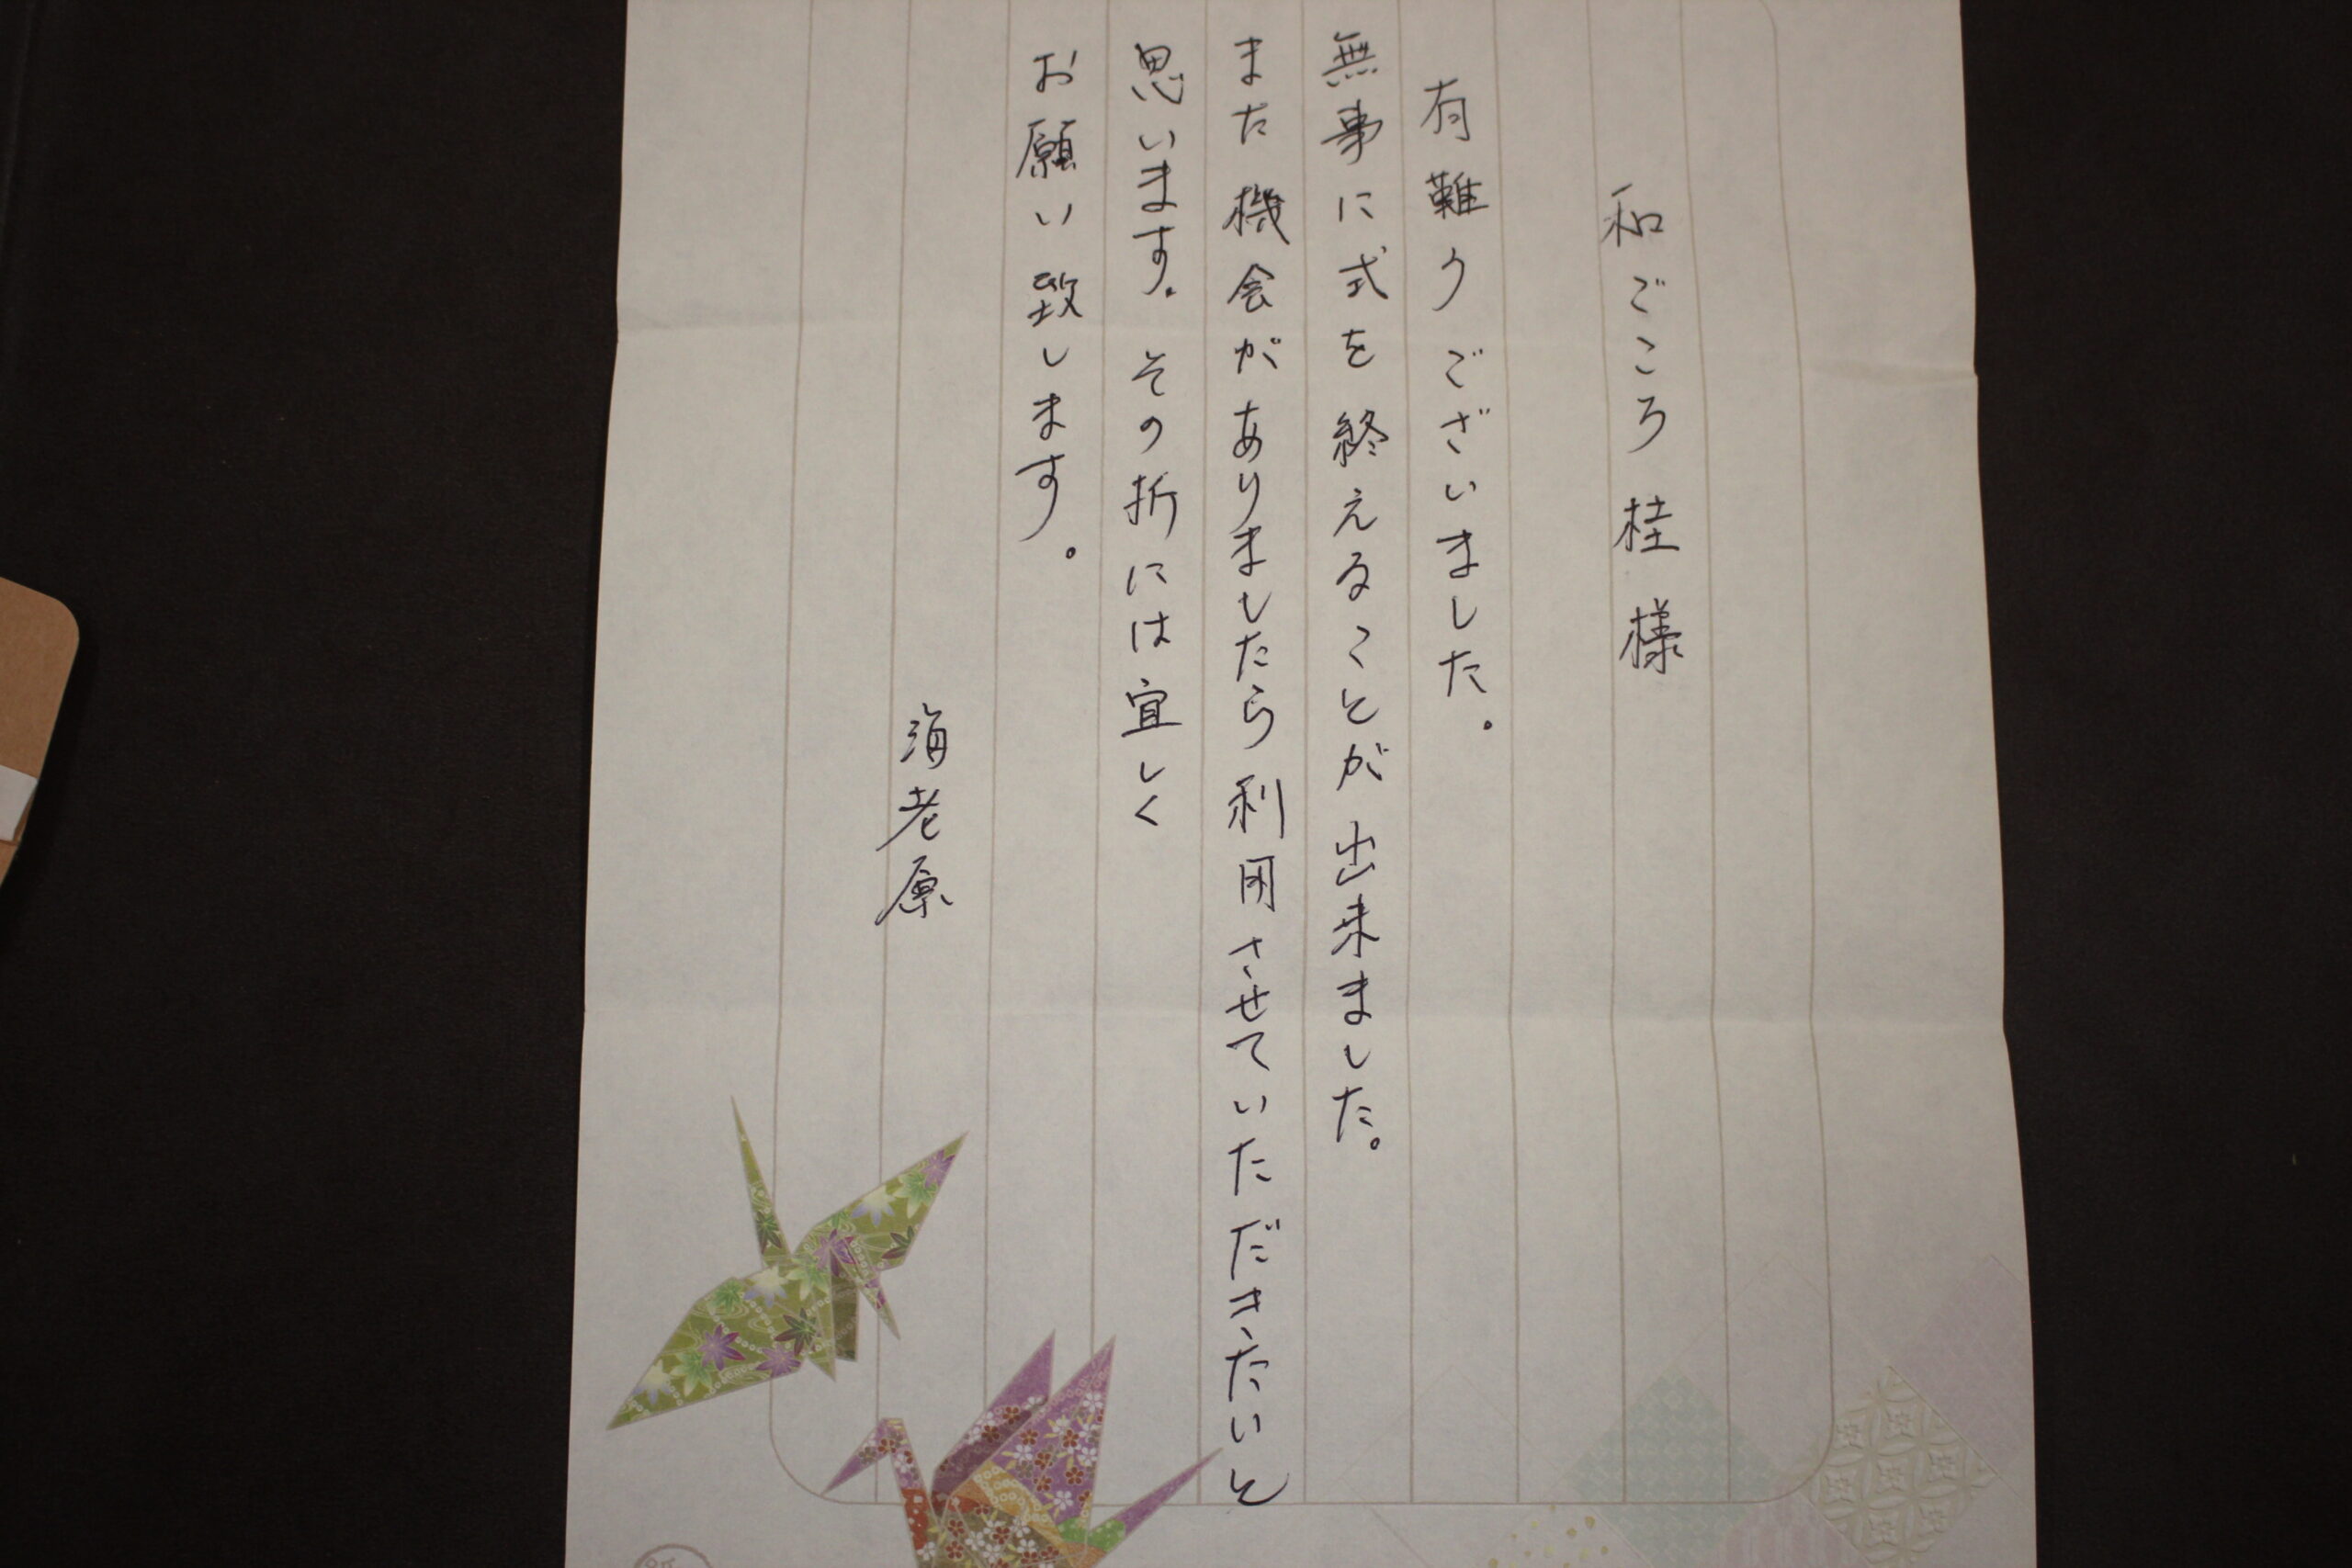 和ごころ 桂 様
有難うございました。
無事に式を終えることが出来ました。
また機会がありましたら利用させていただきたいと
思います。その折には宜しく
お願い致します。
海老原